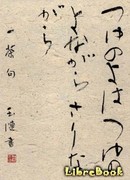 つゆのよはつゆの
よながらさりな
がら
一茶句
書
LibreBook